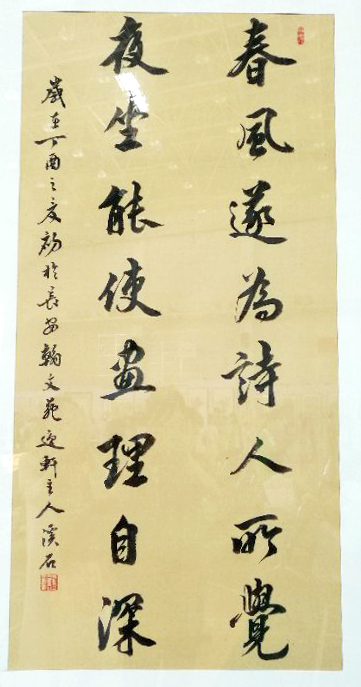 春風遂為詩人所覺
夜坐能使畫理自深
歲在丁酉之夏初於長安翰文苑迎軒主人溪石